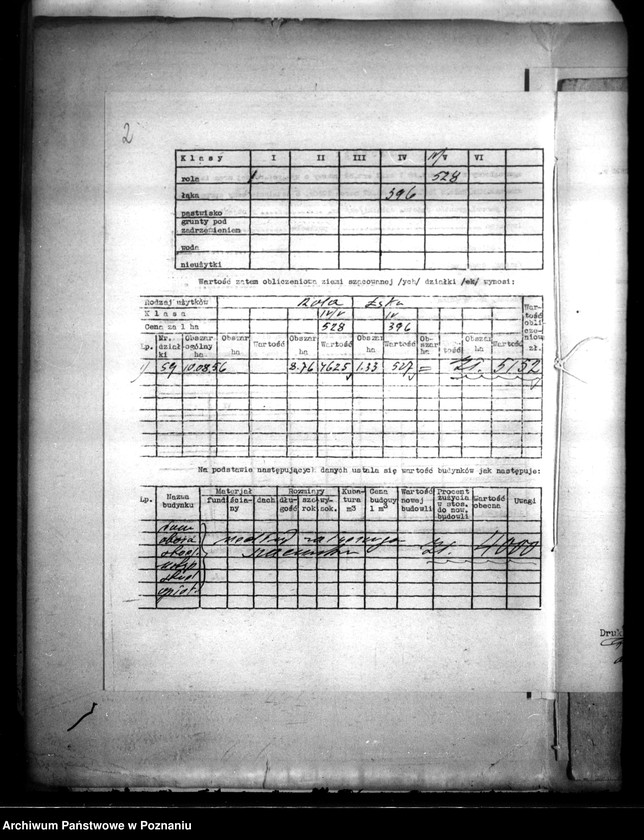 2
Klasy I II III IV IV/V VI
rola 528
łąka 396
pastwisko
grunty pod
zadrzewieniem
woda
nieużytki
Wartość zatem obliczeniowa ziemi szacowanej /ych/ działki /ek/ wynosi:
Rodzaj użytków Rola Łąka
Klasa IV/V IV
Cena za 1 ha 528 396
Lp. Nr. działki Obszar ogólny ha Obszar ha Wartość Obszar ha Wartość Obszar ha Wartość Obszar ha Obszar ha Wartość Wartość obliczeniowa zł.
59 10.0856 8.76 4625 1.33 527 = Zł. 5152
Na podstawie następujących danych ustala się wartość budynków jak następuje:
Lp. Nazwa budynku Materjał fund ściany dach Rozmiary długość szerok wysok. Kubatura m3 Cena budowy 1 m3 Wartość nowej budowli Procent zużycia w stos. do now. budowli Wartość obecna Uwagi
dom
obora według
Zł. 4000
Druk
Archiwum Państwowe w Poznaniu